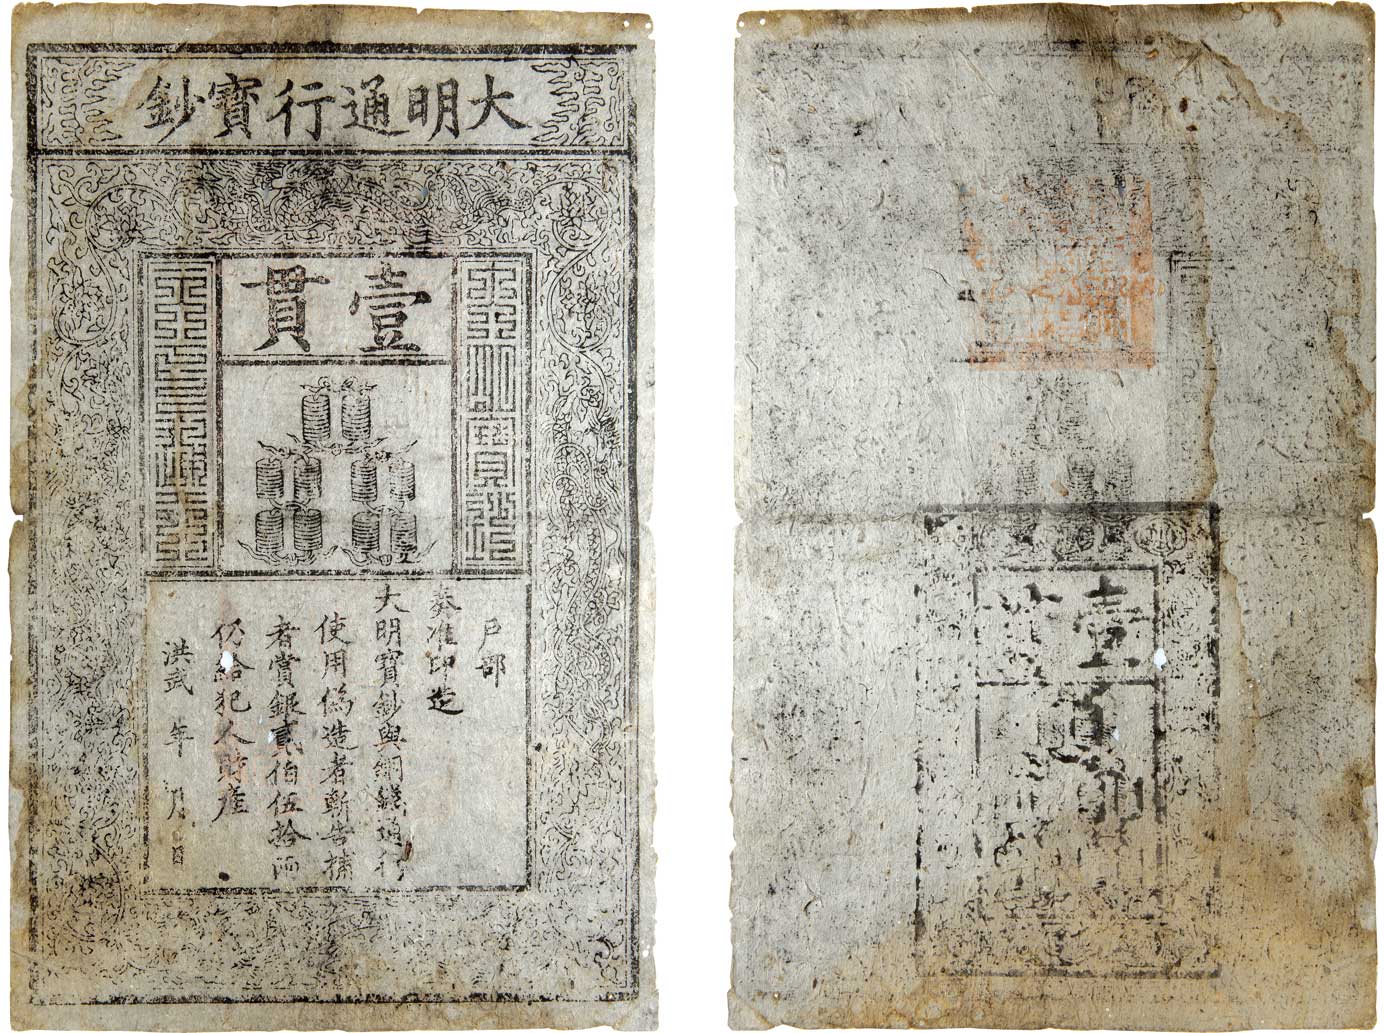 大明通行寶鈔
壹貫
大明寶鈔
天下通行
戸部
奏准印造
大明寶鈔與銅錢通行
使用僞造者斬告捕
者賞銀貳伯伍拾兩
仍給犯人財產
洪武 年 月 日
壹貫